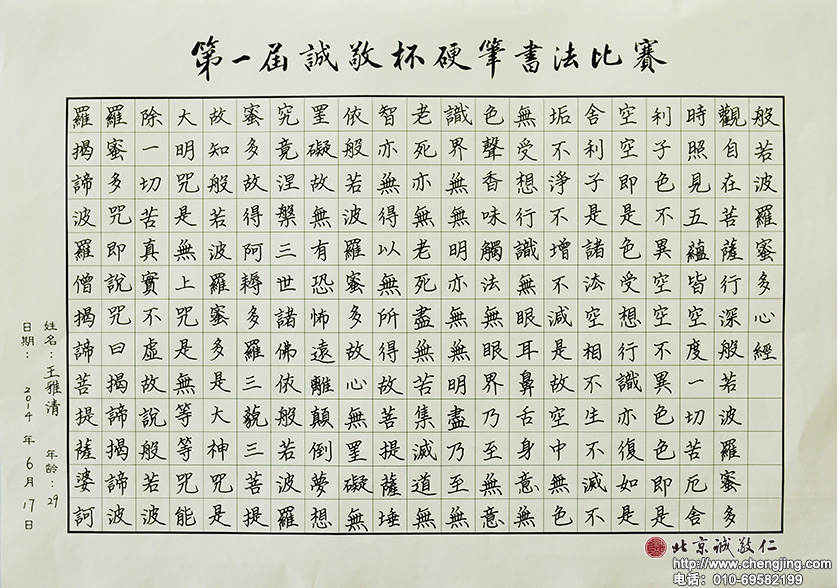 第一届誠敬杯硬筆書法比賽
般若波羅蜜多心經
觀自在菩薩行深般若波羅蜜多
時照見五蘊皆空度一切苦厄舍
利子色不異空空不異色色即是
空空即是色受想行識亦復如是
舍利子是諸法空相不生不滅不
垢不淨不增不減是故空中無色
無受想行識無眼耳鼻舌身意無
色聲香味觸法無眼界乃至無意
識界無無明亦無無明盡乃至無
老死亦無老死盡無苦集滅道無
智亦無得以無所得故菩提薩埵
依般若波羅蜜多故心無罣礙無
罣礙故無有恐怖遠離顛倒夢想
究竟涅槃三世諸佛依般若波羅
蜜多故得阿耨多羅三藐三菩提
故知般若波羅蜜多是大神咒是
大明咒是無上咒是無等等咒能
除一切苦真實不虛故說般若波
羅蜜多咒即說咒曰揭諦揭諦波
羅揭諦波羅僧揭諦菩提薩婆訶
姓名：王雅清 年齡：29
日期： 2014年6月17日
北京誠敬仁
http://www.chengjing.com
电话：010-69582199